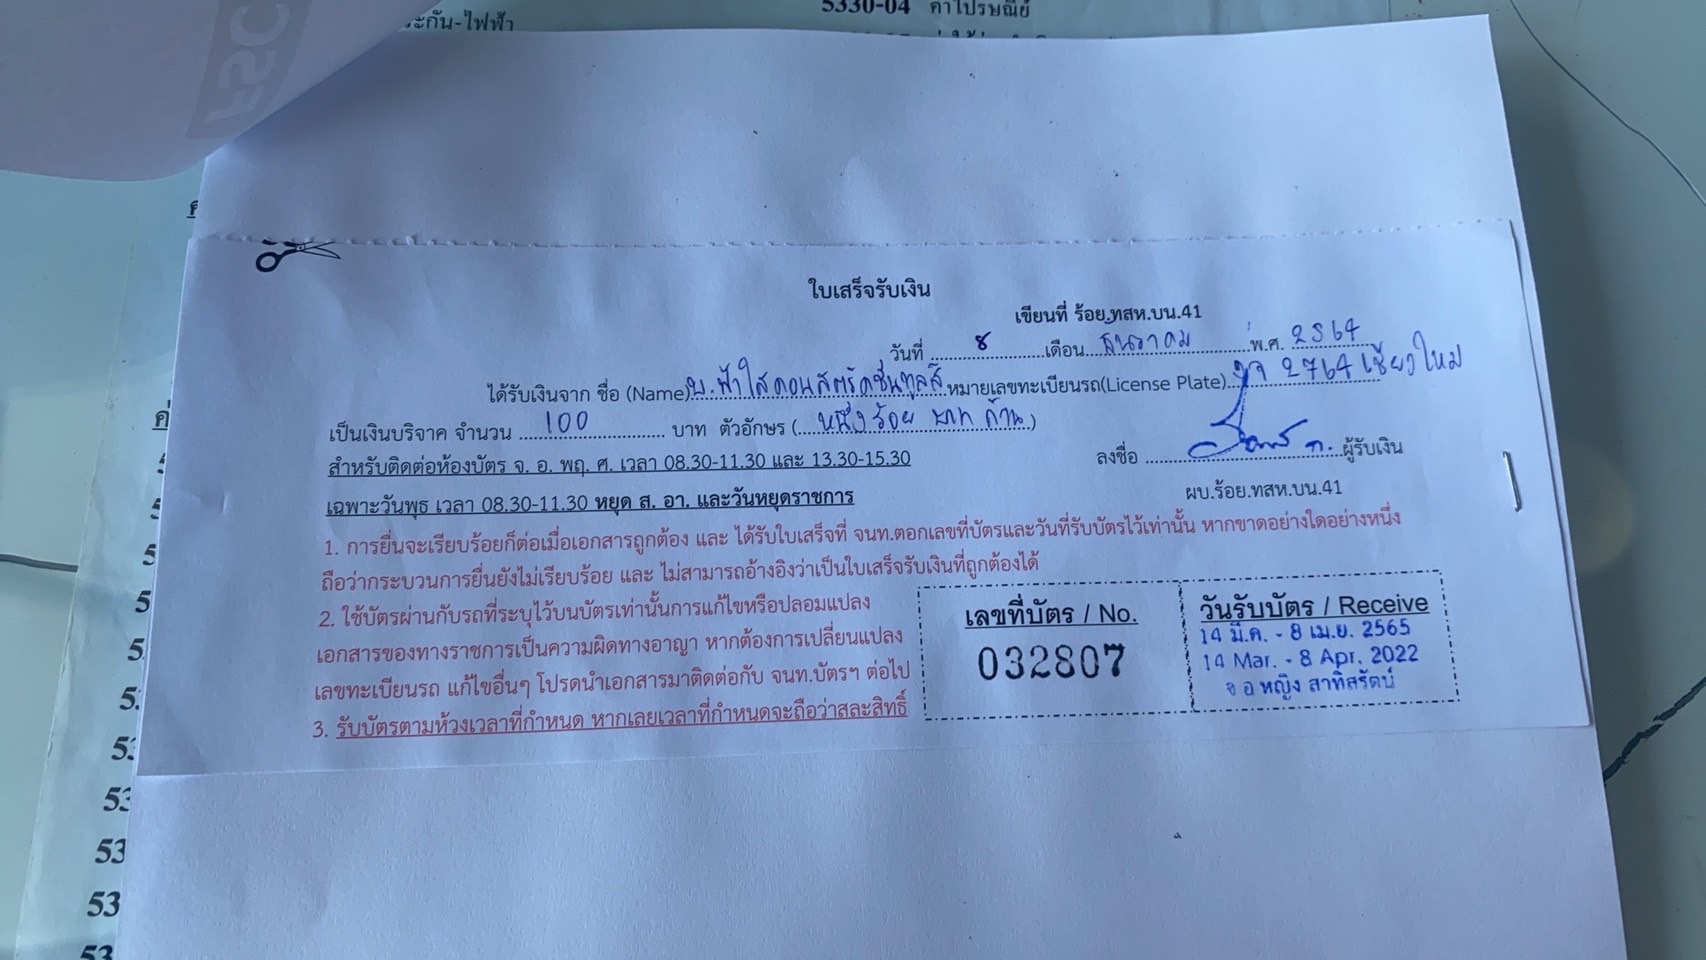 5330-04 ค่าไปรษณีย์
ระกัน-ไฟฟ้า
ใบเสร็จรับเงิน
เขียนที่ ร้อย.ทสห.บน.41
วันที่ 8 เดือน ธันวาคม พ.ศ. 2564
ได้รับเงินจาก ชื่อ (Name) บ.ฟ้าใสคอนสตรัคชั่นทูลส์ หมายเลขทะเบียนรถ(License Plate) 2764 เชียงใหม่
เป็นเงินบริจาค จำนวน 100 บาท ตัวอักษร (หนึ่งร้อย บาท ถ้วน)
สำหรับติดต่อห้องบัตร จ. อ. พฤ. ศ. เวลา 08.30-11.30 และ 13.30-15.30
ลงชื่อ ผู้รับเงิน
เฉพาะวันพุธ เวลา 08.30-11.30 หยุด ส. อา. และวันหยุดราชการ
ผบ.ร้อย.ทสห.บน.41
1. การยื่นจะเรียบร้อยก็ต่อเมื่อเอกสารถูกต้อง และ ได้รับใบเสร็จที่ จนท.ตอกเลขที่บัตรและวันที่รับบัตรไว้เท่านั้น หากขาดอย่างใดอย่างหนึ่ง
ถือว่ากระบวนการยื่นยังไม่เรียบร้อย และ ไม่สามารถอ้างอิงว่าเป็นใบเสร็จรับเงินที่ถูกต้องได้
2. ใช้บัตรผ่านกับรถที่ระบุไว้บนบัตรเท่านั้นการแก้ไขหรือปลอมแปลง
เอกสารของทางราชการเป็นความผิดทางอาญา หากต้องการเปลี่ยนแปลง
เลขทะเบียนรถ แก้ไขอื่นๆ โปรดนำเอกสารมาติดต่อกับ จนท.บัตรฯ ต่อไป
3. รับบัตรตามห้วงเวลาที่กำหนด หากเลยเวลาที่กำหนดจะถือว่าสละสิทธิ์
เลขที่บัตร / No.
032807
วันรับบัตร / Receive
14 มี.ค. - 8 เม.ย. 2565
14 Mar. - 8 Apr. 2022
จ อ หญิง สาทิสรัตน์